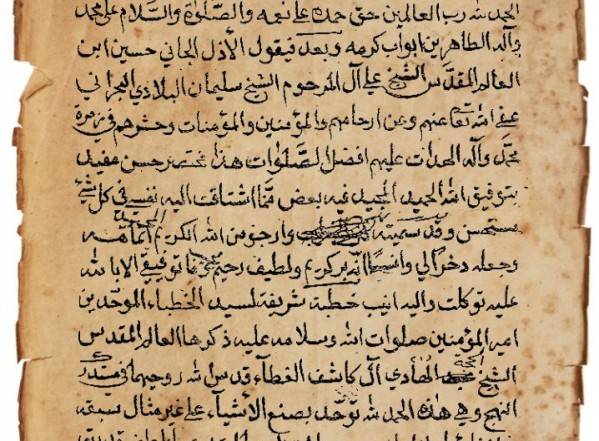 الحمد لله رب العالمين حق حمده على نعمه والصلوة والسلام على محمد
وآله الطاهرين ابواب كرمه وبعد فيقول الأذل الجاني حسين ابن
العالم المقدس الشيخ علي آل المرحوم الشيخ سليمان البلادي البحراني
عفى الله تعا عنهم وعن ارحامهم والمؤمنين والمؤمنات وحشرهم في زمرة
محمد وآله الهداة عليهم افضل الصلوات هذا مختصر حسن مفيد
بتوفيق الله الحميد المجيد فيه بعض مما اشتاقت اليه نفسي في كل شيء
مستحسن وقد سميته وارجو من الله الكريم اتمامه
وجعله ذخرا لي انه بر كريم ولطيف رحيم وما توفيقي الا بالله
عليه توكلت واليه انيب خطبة شريفة لسيد الخطباء الموحدين
امير المؤمنين صلوات الله وسلامه عليه ذكرها العالم المقدس
الشيخ الهادي آل كاشف الغطآء قدس الله روحيهما في مستدرك
النهج وهي هذه الحمد لله توحد بصنع الأشيآء على غير مثال سبقه